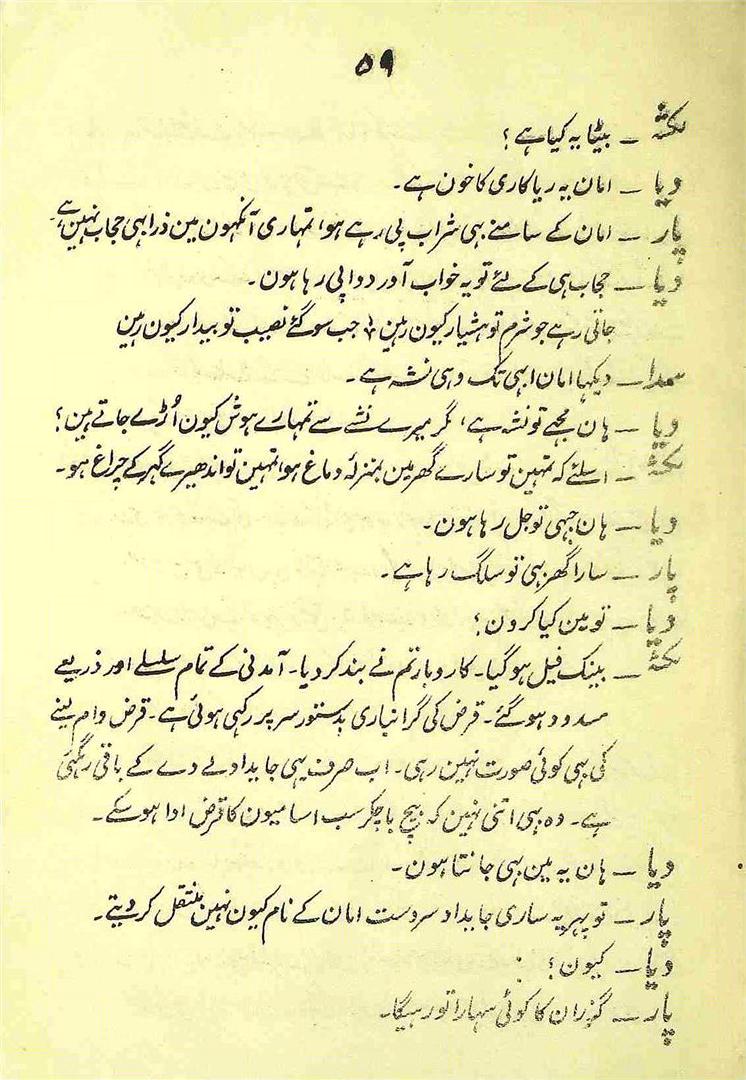 ۵۹
لکشہ ــ بیٹا یہ کیا ہے؟
دیا ــ امان یہ ریاکاری کا خون ہے۔
پار ــ امان کے سامنے ہی شراب پی رہے ہو، تمہاری آنکہون مین ذرا بہی حجاب نہین ہے۔
دیا ــ حجاب ہی کے لئے تو یہ خواب آور دوا پی رہا ہون۔
جاتی رہے جو شرم تو ہشیار کیون رہین ؛ جب سو گئے نصیب تو بیدار کیون رہین
سمدا ــ دیکہا امان ابہی تک وہی نشہ ہے۔
دیا ــ ہان مجہے تو نشہ ہے، مگر میرے نشے سے تمہارے ہوش کیون اُڑے جاتے ہین؟
لکشہ ــ اسلئے کہ تمہین تو سارے گھر مین بمنزلۂ دماغ ہو، تمہین تو اندھیرے گہر کے چراغ ہو۔
دیا ــ ہان جبہی تو جل رہا ہون۔
پار ــ سارا گھر ہی تو سلگ رہا ہے۔
دیا ــ تو مین کیا کرون؟
لکشہ ــ بینک فیل ہو گیا۔ کاروبار تم نے بند کر دیا۔ آمدنی کے تمام سلسلے اور ذریعے
مسدود ہو گئے۔ قرض کی گرانباری بدستور سر پر رکہی ہوئی ہے۔ قرض وام لینے
کی بہی کوئی صورت نہین رہی۔ اب صرف یہی جایداد لے دے کے باقی رہگئی
ہے۔ وہ بہی اتنی نہین کہ بیچ باچکر سب اسامیون کا قرض ادا ہو سکے۔
دیا ــ ہان یہ مین بہی جانتا ہون۔
پار ــ تو پہر یہ ساری جایداد سردست امان کے نام کیون نہین منتقل کر دیتے۔
دیا ــ کیون؟
پار ــ گزران کا کوئی سہارا تو رہیگا۔